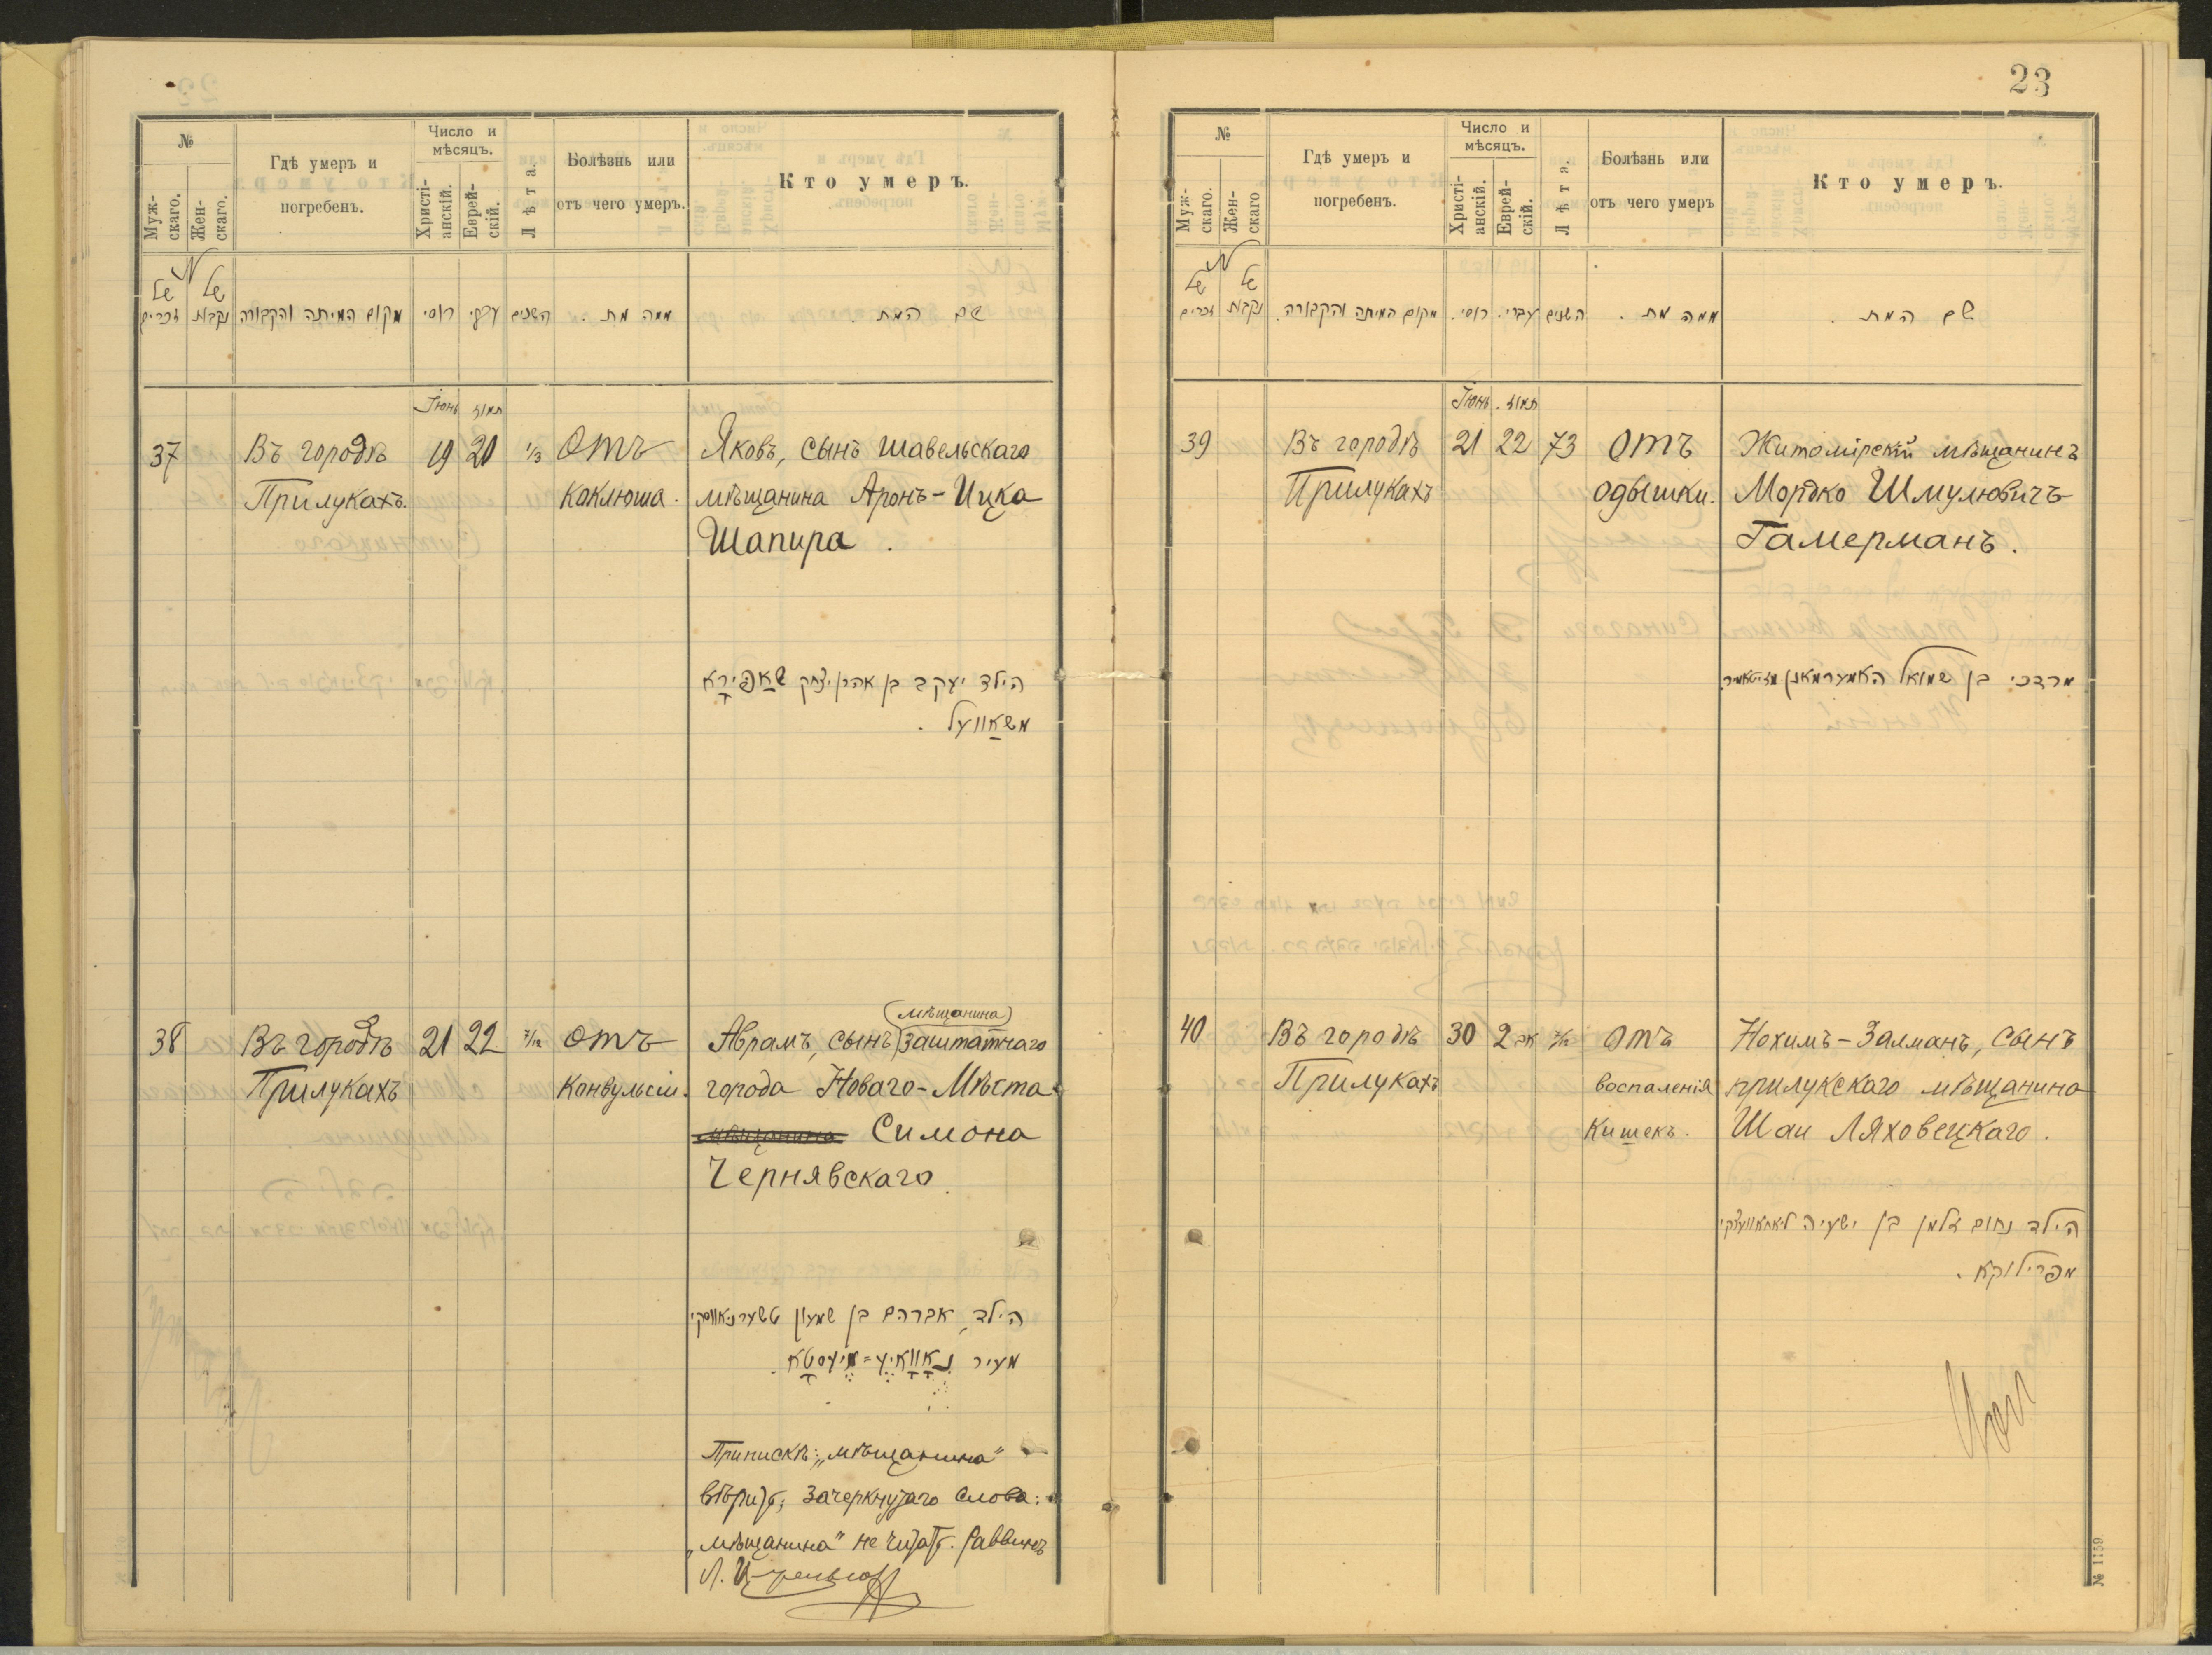 №
Муж-
скаго.
Жен-
скаго.
Гдѣ умеръ и
погребенъ.
Число и
мѣсяцъ.
Христі-
анскій.
Еврей-
скій.
Лѣта.
Болѣзнь или
отъ чего умеръ.
Кто умеръ.
№
של
זכרים
של
נקבות
מקום המיתה והקבורה
רוסי
עברי
השנים
ממה מת .
שם המת .
Іюнь תמוז
37 Въ городѣ 19 20 1/3 Отъ Яковъ, сынъ шавельскаго
Прилукахъ. коклюша. мѣщанина Аронъ-Ицка
Шапира .
הילד יעקב בן אהרן יצחק שאפירא
משאוועל .
(мѣщанина)
38 Въ городѣ 21 22 7/12 Отъ Аврамъ, сынъ заштатнаго
Прилукахъ конвульсіи. города Новаго-Мѣста
мѣщанина Симона
Чернявскаго.
הילד אברהם בן שמעון טשערניאווסקי
מעיר נאוואיע=מיעסטא .
Припискѣ: „мѣщанина"
вѣрить; зачеркнутаго слова:
„мѣщанина" не читать. Раввинъ
23
№
Муж-
скаго.
Жен-
скаго
Гдѣ умеръ и
погребенъ.
Число и
мѣсяцъ.
Христі-
анскій.
Еврей-
скій.
Лѣта.
Болѣзнь или
отъ чего умеръ
Кто умеръ.
№
של
זכרים
של
נקבות
מקום המיתה והקבורה .
רוסי .
עברי .
השנים
ממה מת .
שם המת .
Іюнь . תמוז
39 Въ городѣ 21 22 73 Отъ Житомірскій мѣщанинъ
Прилукахъ одышки. Мордко Шмулювичъ
Гамерманъ.
מרדכי בן שמואל האמערמאנן
40 Въ городѣ 30 2 אב 7/12 Отъ Нохимъ-Залманъ, сынъ
Прилукахъ воспаленія прилукскаго мѣщанина
Кишекъ. Шаи Ляховецкаго.
הילד נחום זלמן בן ישעיה ליאחאוועצקי
מפרילוקא .
№ 1159